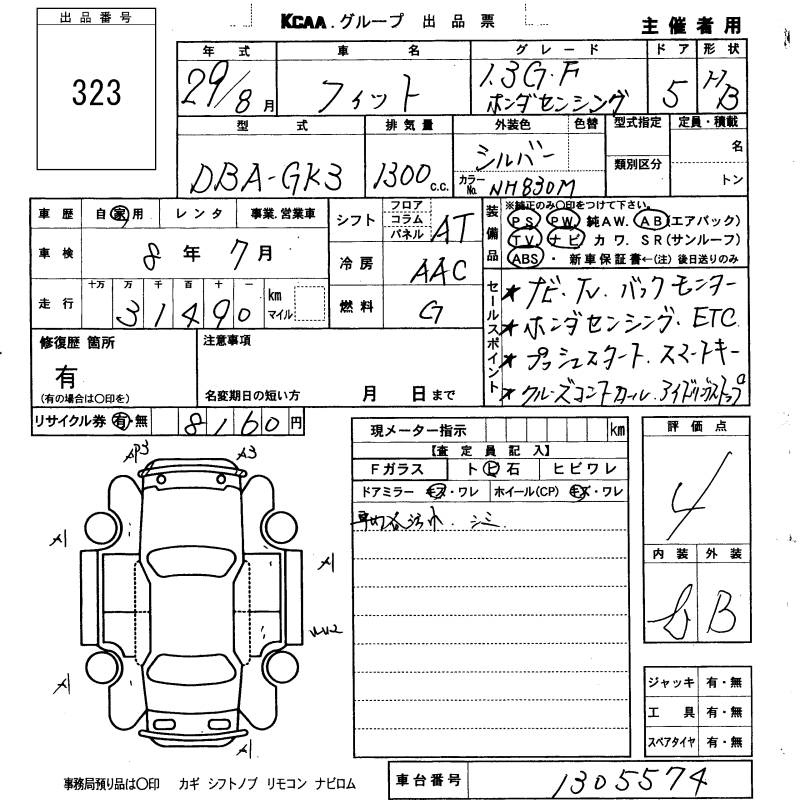 出品番号
323
KCAA グループ 出品票
主催者用
年式 車名 グレード ドア 形状
29/8月 フィット 1.3G・F ホンダセンシング 5 HB
型式 排気量 外装色 色替 型式指定 定員・積載
DBA-GK3 1300c.c. シルバー 名
カラーNo. NH830M 類別区分 トン
車歴 自家用 レンタ 事業.営業車
車検 8年7月
走行 十万 万 千 百 十 一
31490 km マイル
シフト フロア コラム パネル AT
冷房 AAC
燃料 G
装備品 ※純正のみ〇印をつけて下さい。
PS PW 純AW. AB(エアバック)
TV ナビ カワ. SR(サンルーフ)
ABS ・ 新車保証書←(注) 後日送りのみ
セールスポイント
★ナビ・TV.バックモニター
★ホンダセンシング.ETC
★プッシュスタート.スマートキー
★クルーズコントロール.アイドリングストップ
修復歴 箇所
有
(有の場合は〇印を)
注意事項
名変期日の短い方 月 日まで
リサイクル券 有・無 8160円
現メーター指示 km
【査定員記入】
Fガラス トビ石 ヒビワレ
ドアミラー キズ・ワレ ホイール(CP) キズ・ワレ
シミ
評価点
4
内装 外装
b B
AP3 A3
A1
A1
A1
A1
ジャッキ 有・無
工具 有・無
スペアタイヤ 有・無
事務局預り品は〇印 カギ シフトノブ リモコン ナビロム
車台番号 1305574